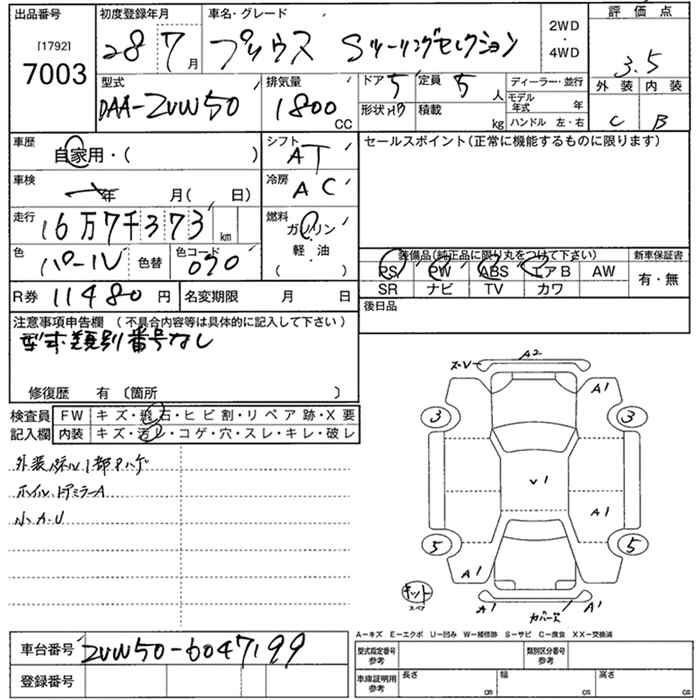 出品番号 初度登録年月 車名・グレード 評価点
[1792] 28 7月 プリウス Sツーリングセレクション 2WD・4WD 3.5
7003
型式 排気量 ドア 5 定員 5人 ディーラー・並行 外装 内装
DAA-ZVW50 1800CC 形状 HB 積載 kg モデル年式 年 C B
ハンドル 左・右
車歴 自家用・( ) シフト AT セールスポイント(正常に機能するものに限ります)
車検 年 月( 日) 冷房 AC
走行 16万7千373km 燃料 ガソリン
色 パール 色替 色コード 070 軽・油 ( )
装備品(純正品に限り丸をつけて下さい) 新車保証書
PS PW ABS エアB AW 有・無
SR ナビ TV カワ
R券 11480円 名変期限 月 日 後日品
注意事項申告欄 (不具合内容等は具体的に記入して下さい)
型式類別番号なし
修復歴 有 〔箇所 〕
検査員 FW キズ・飛石・ヒビ割・リペア跡・X要
記入欄 内装 キズ・汚レ・コゲ・穴・スレ・キレ・破レ
外装パネル1部Pハゲ
ホイル、ドアミラーA
小カ.U
ズ・V A2
A1
3 3
V1
A1
5 5
A1
キット
スペア
A1 カバーズ A1
A−キズ E−エクボ U−凹み W−補修跡 S−サビ C−腐食 XX−交換済
車台番号 ZVW50-6047199 型式指定番号 参考 類別区分番号 参考
登録番号 車庫証明用 参考 長さ cm 幅 cm 高さ cm